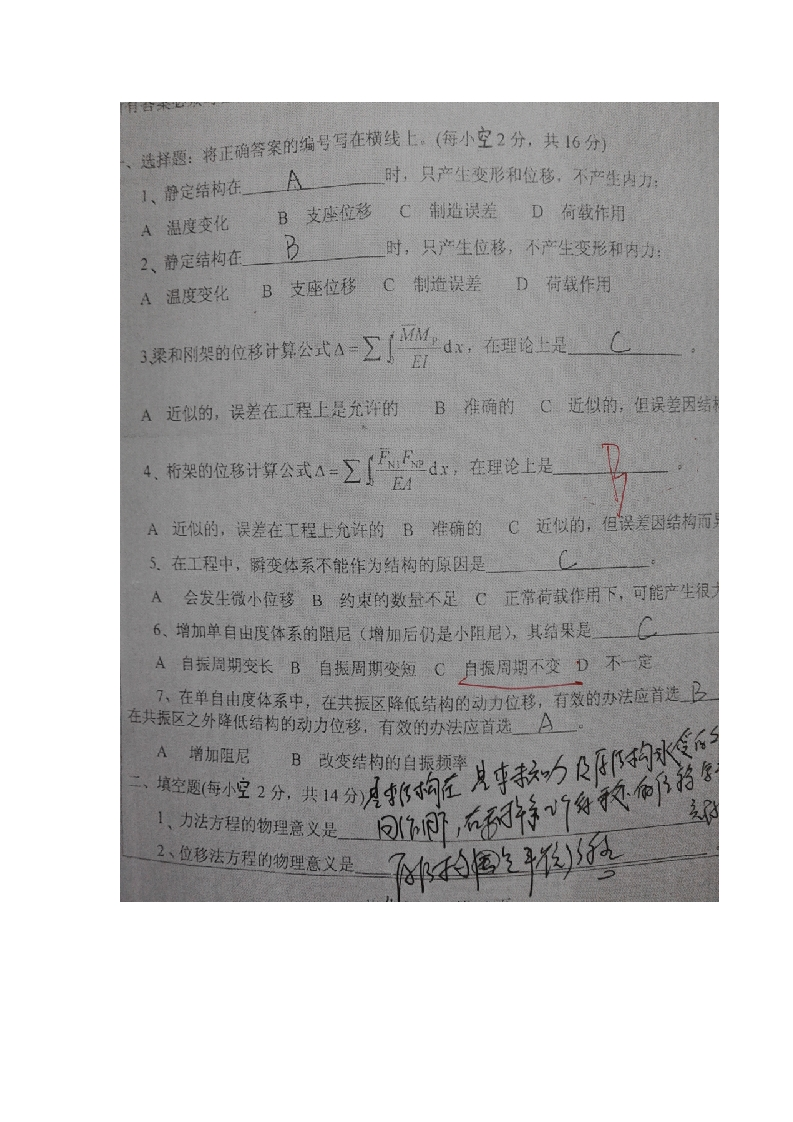 一、选择题：将正确答案的编号写在横线上。(每小空2分，共16分)
1、静定结构在 A 时，只产生变形和位移，不产生内力；
A 温度变化 B 支座位移 C 制造误差 D 荷载作用
2、静定结构在 B 时，只产生位移，不产生变形和内力；
A 温度变化 B 支座位移 C 制造误差 D 荷载作用
3、梁和刚架的位移计算公式 Δ=∑∫M̄M_P/EI dx，在理论上是 C 。
A 近似的，误差在工程上是允许的 B 准确的 C 近似的，但误差因结构
4、桁架的位移计算公式 Δ=∑∫F̄_N1F_NP/EA dx，在理论上是 B 。
A 近似的，误差在工程上允许的 B 准确的 C 近似的，但误差因结构而异
5、在工程中，瞬变体系不能作为结构的原因是 C 。
A 会发生微小位移 B 约束的数量不足 C 正常荷载作用下，可能产生很大
6、增加单自由度体系的阻尼（增加后仍是小阻尼），其结果是 C
A 自振周期变长 B 自振周期变短 C 自振周期不变 D 不一定
7、在单自由度体系中，在共振区降低结构的动力位移，有效的办法应首选 B
在共振区之外降低结构的动力位移，有效的办法应首选 A 。
A 增加阻尼 B 改变结构的自振频率
二、填空题(每小空2分，共14分)
基本结构在
1、力法方程的物理意义是
2、位移法方程的物理意义是